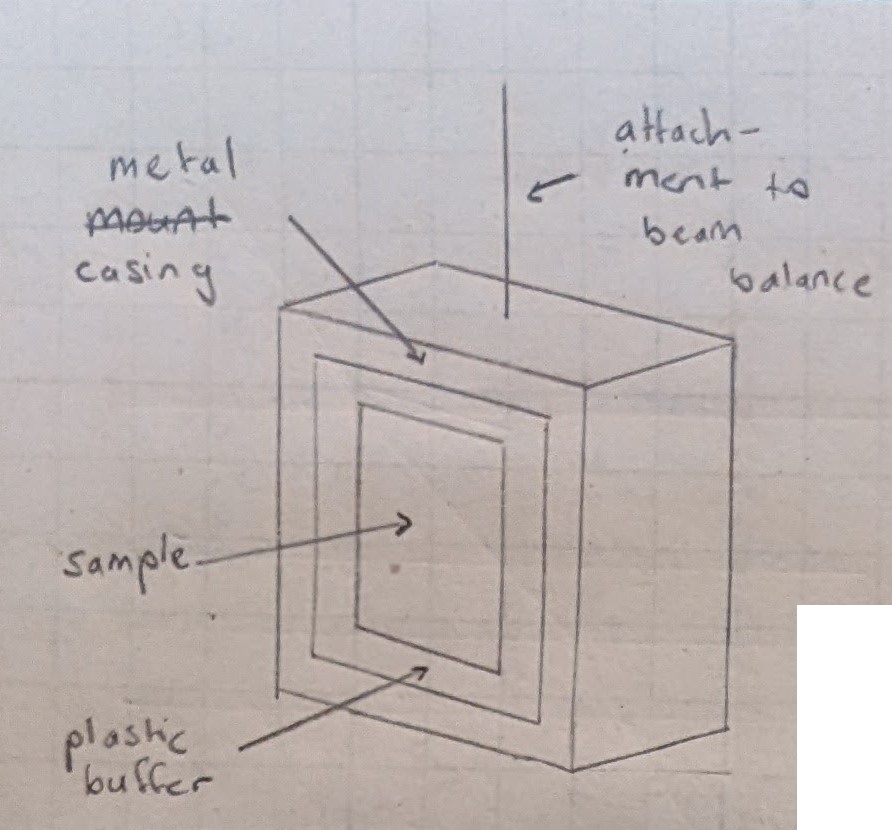 metal
mount
casing
attach-
ment to
beam
balance
sample
plastic
buffer